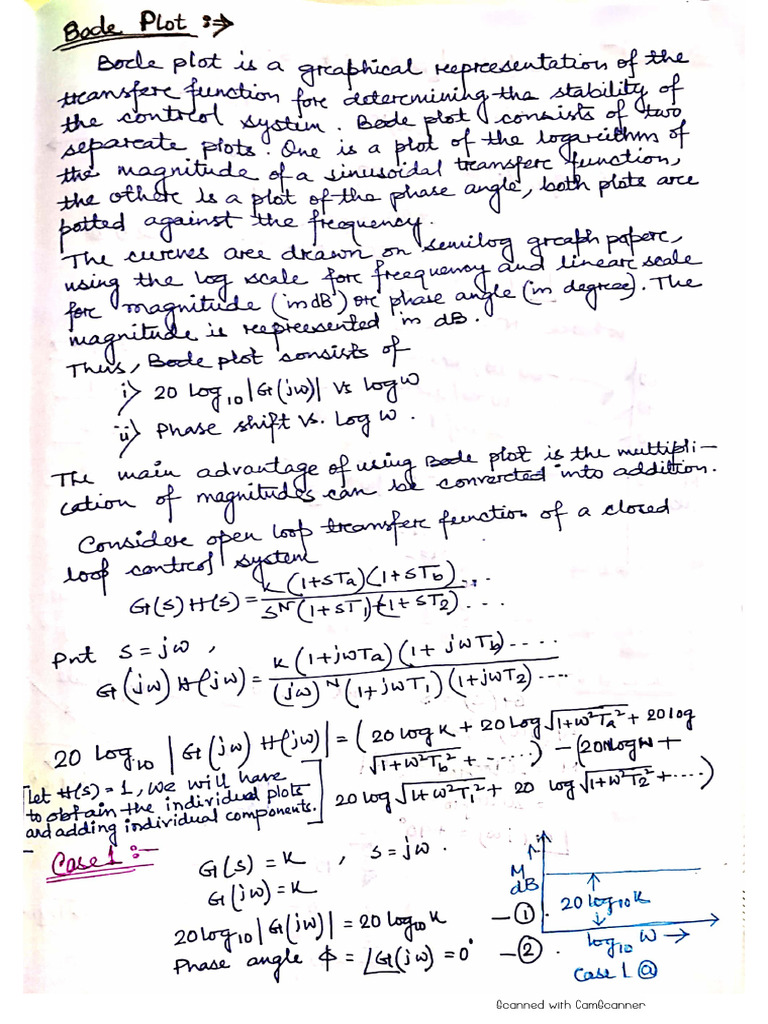 Bode Plot :→
Bode plot is a graphical representation of the
transfer function for determining the stability of
the control system. Bode plot consists of two
separate plots. One is a plot of the logarithm of
the magnitude of a sinusoidal transfer function,
the other is a plot of the phase angle, both plots are
potted against the frequency.
The curves are drawn on semilog graph paper,
using the log scale for frequency and linear scale
for magnitude (in dB) or phase angle (in degree). The
magnitude is represented in dB.
Thus, Bode plot consists of
i) 20 log₁₀ |G(jω)| vs log ω
ii) Phase shift vs. Log ω.
The main advantage of using Bode plot is the multipli-
cation of magnitudes can be converted into addition.
Consider open loop transfer function of a closed
loop control system
G(s) H(s) = K(1+sTa)(1+sTb)... / s^N(1+sT1)(1+sT2)...
Put s = jω,
G(jω) H(jω) = K(1+jωTa)(1+jωTb).... / (jω)^N (1+jωT1)(1+jωT2)....
20 Log₁₀ |G(jω) H(jω)| = (20 log K + 20 Log √1+ω²Ta² + 20 log
√1+ω²Tb² + .....) - (20N log ω +
20 log √1+ω²T1² + 20 log √1+ω²T2² + ....)
[Let H(s) = 1, we will have
to obtain the individual plots
and adding individual components.]
Case 1 :-
G(s) = K , s = jω.
G(jω) = K
20 log₁₀ |G(jω)| = 20 log₁₀ K — ①.
Phase angle ϕ = ∠G(jω) = 0° — ②.
M
dB
20 log₁₀ K
log₁₀ ω →
Case 1 ⓐ
Scanned with CamScanner